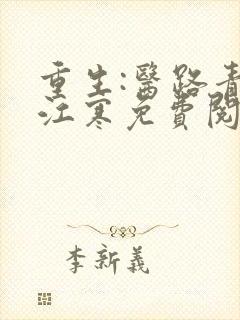 重生:醫路青
江寒免費閱
李新義